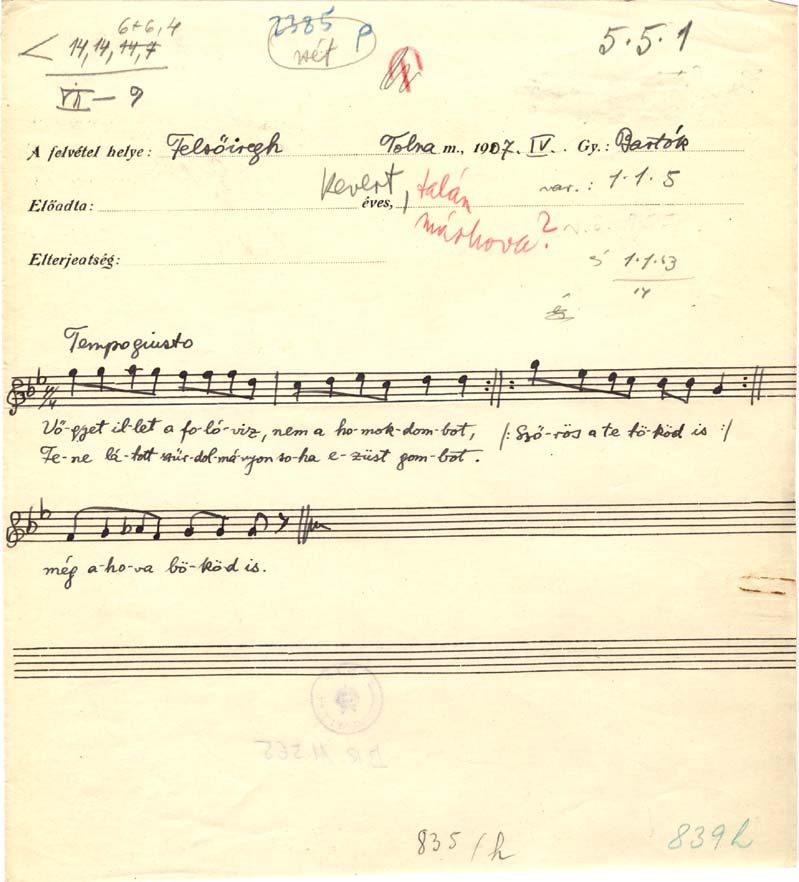 6+6,4
14,14,14,7
VII – 9
2385 p
vét
5.5.1
A felvétel helye: Felsőiregh Tolna m., 1907. IV. Gy.: Bartók
Kevert, talán
máshova?
var.: 1.1.5
Előadta: éves,
Elterjeatség:
1.1.43
14
és
Tempo giusto
Vő-gyet il-let a fo-ló-viz, nem a ho-mok-dom-bot, /: Sző-rös a te tö-köd is :/
Fe-ne lá-tott szür-dol-má-nyon so-ha e-züst gom-bot.
még a-ho-va bö-köd is.
835/h
839h